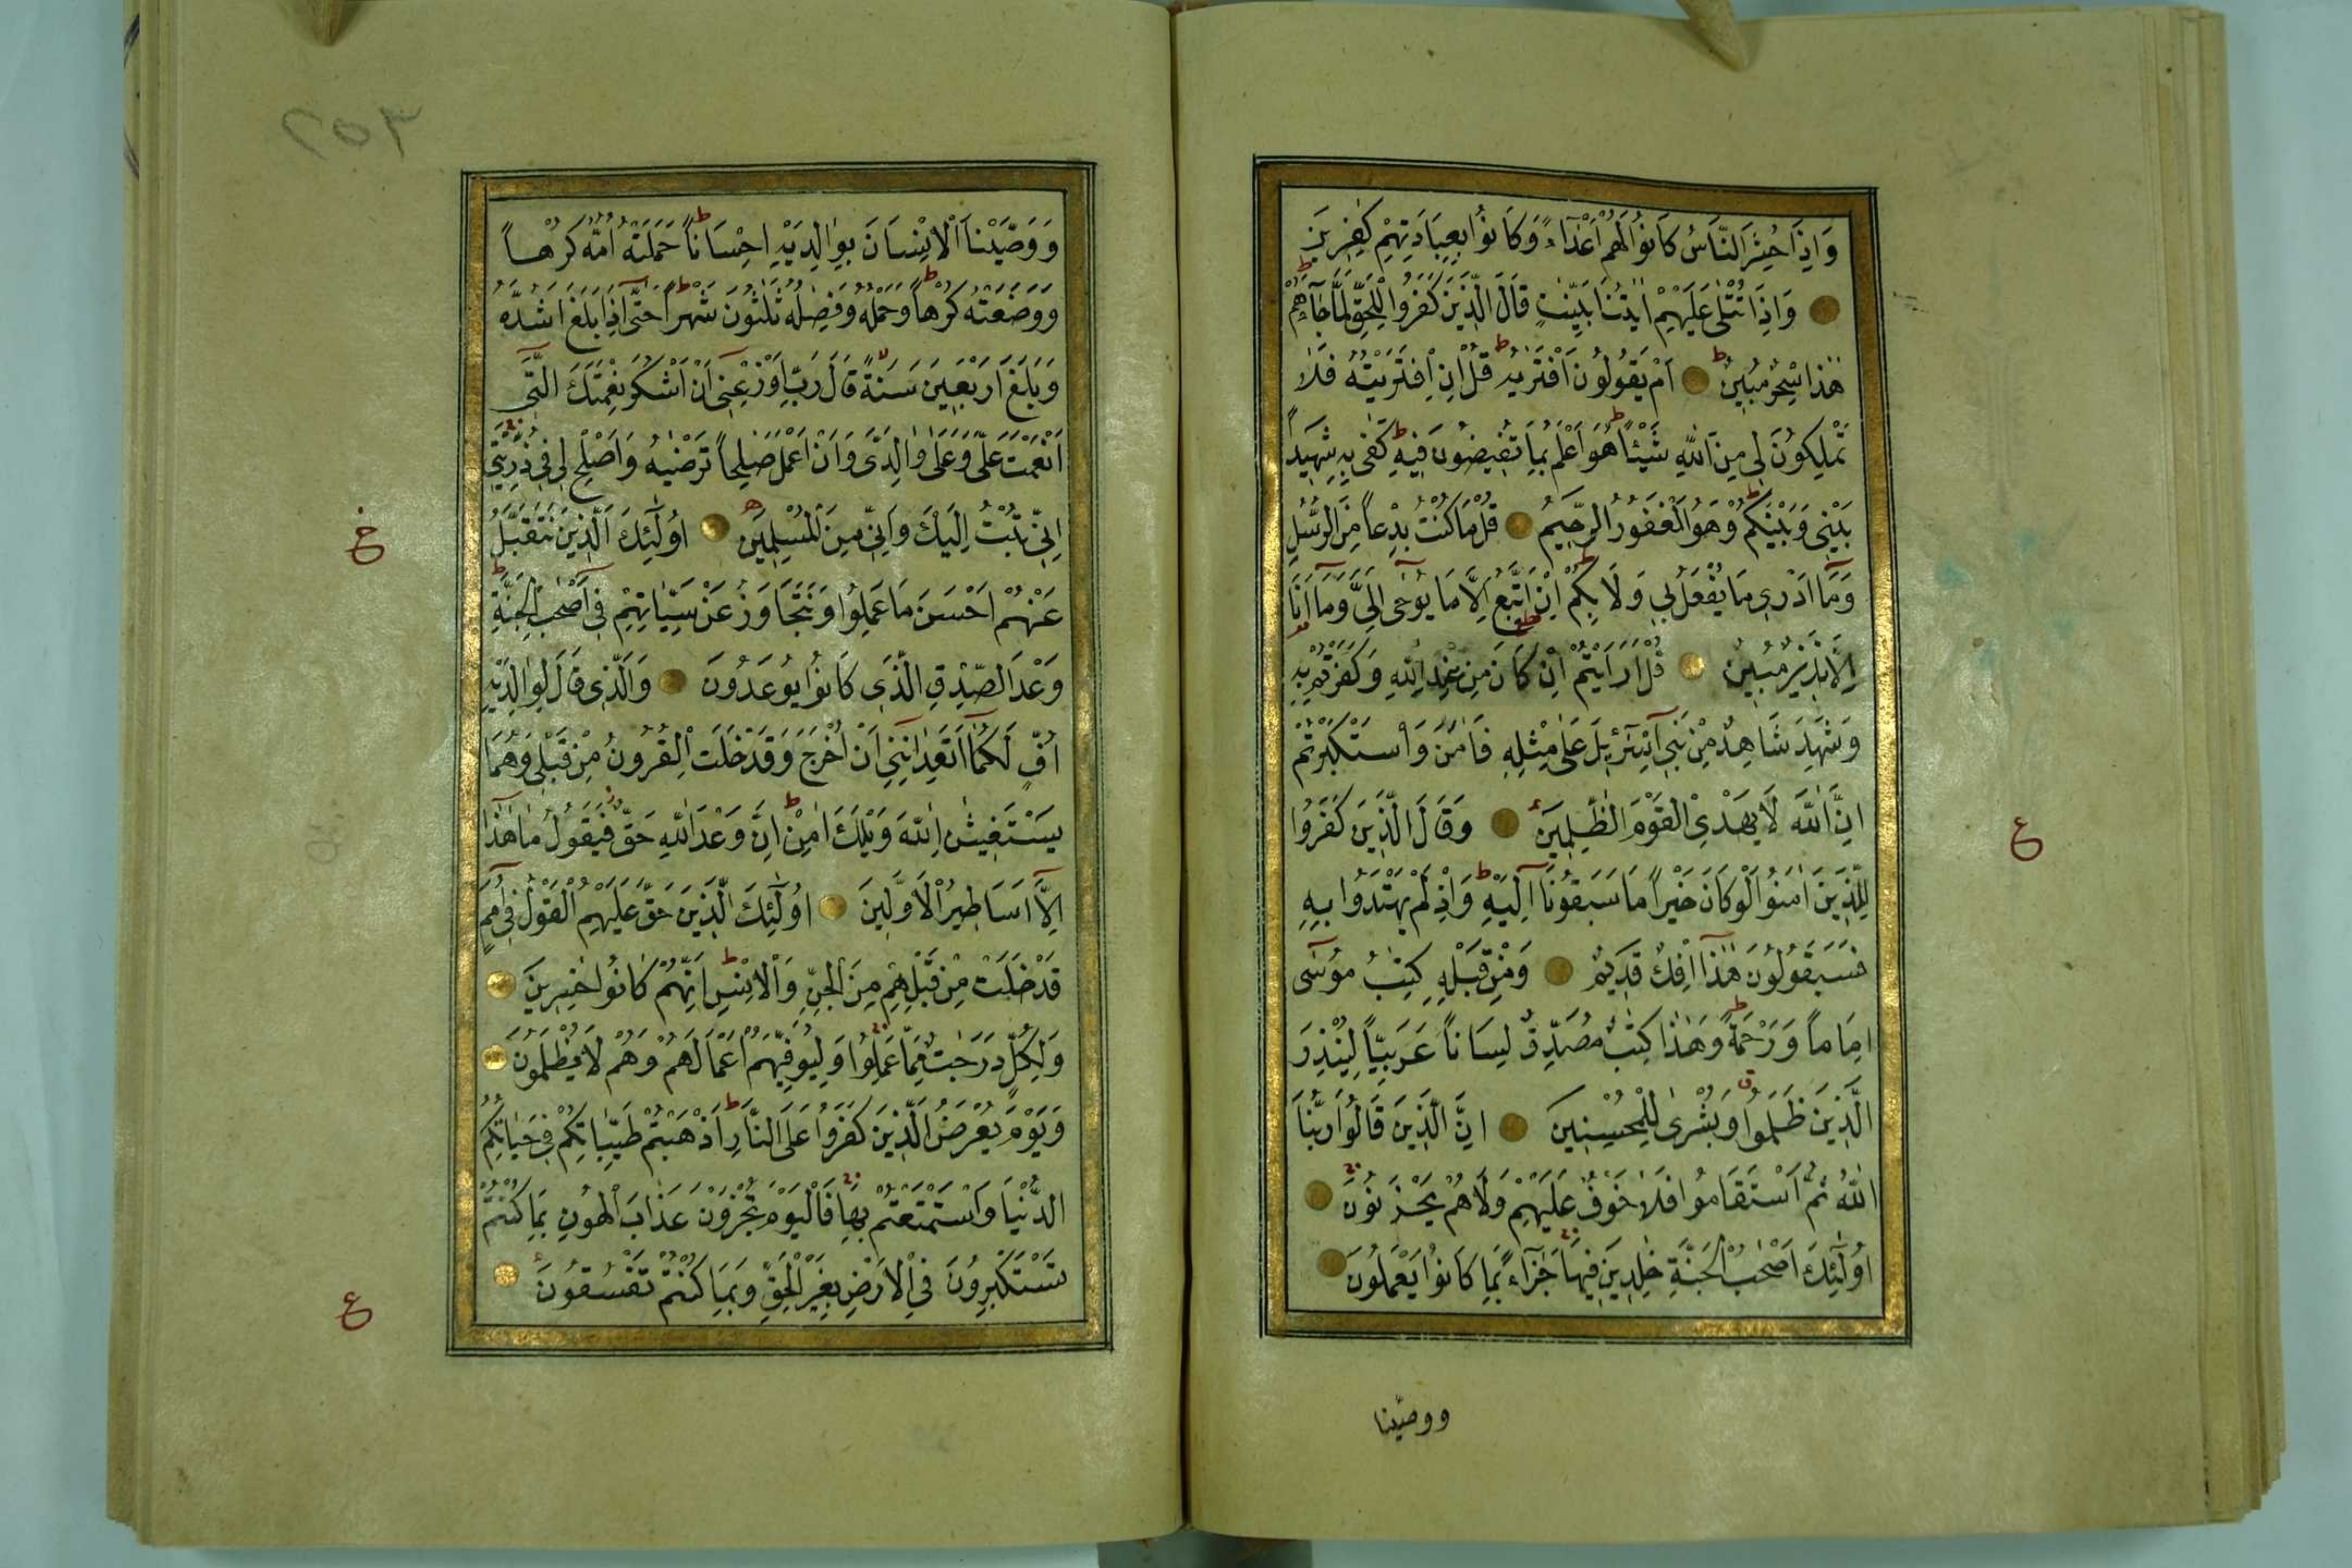 وَاِذَا حُشِرَ النَّاسُ كَانُوا لَهُمْ اَعْدَاءً وَكَانُوا بِعِبَادَتِهِمْ كٰفِرِينَ
وَاِذَا تُتْلٰى عَلَيْهِمْ اٰيٰتُنَا بَيِّنٰتٍ قَالَ الَّذِينَ كَفَرُوا لِلْحَقِّ لَمَّا جَاءَهُمْ
هٰذَا سِحْرٌ مُبِينٌ اَمْ يَقُولُونَ افْتَرٰيهُ قُلْ اِنِ افْتَرَيْتُهُ فَلَا
تَمْلِكُونَ لِى مِنَ اللّٰهِ شَيْئًا هُوَ اَعْلَمُ بِمَا تُفِيضُونَ فِيهِ كَفٰى بِهِ شَهِيدًا
بَيْنِى وَبَيْنَكُمْ وَهُوَ الْغَفُورُ الرَّحِيمُ قُلْ مَا كُنْتُ بِدْعًا مِنَ الرُّسُلِ
وَمَا اَدْرِى مَا يُفْعَلُ بِى وَلَا بِكُمْ اِنْ اَتَّبِعُ اِلَّا مَا يُوحٰى اِلَىَّ وَمَا اَنَا
اِلَّا نَذِيرٌ مُبِينٌ قُلْ اَرَاَيْتُمْ اِنْ كَانَ مِنْ عِنْدِ اللّٰهِ وَكَفَرْتُمْ بِهِ
وَشَهِدَ شَاهِدٌ مِنْ بَنِى اِسْرَٓائِيلَ عَلٰى مِثْلِهِ فَاٰمَنَ وَاسْتَكْبَرْتُمْ
اِنَّ اللّٰهَ لَا يَهْدِى الْقَوْمَ الظّٰلِمِينَ وَقَالَ الَّذِينَ كَفَرُوا
لِلَّذِينَ اٰمَنُوا لَوْ كَانَ خَيْرًا مَا سَبَقُونَا اِلَيْهِ وَاِذْ لَمْ يَهْتَدُوا بِهِ
فَسَيَقُولُونَ هٰذَا اِفْكٌ قَدِيمٌ وَمِنْ قَبْلِهِ كِتٰبُ مُوسٰى
اِمَامًا وَرَحْمَةً وَهٰذَا كِتٰبٌ مُصَدِّقٌ لِسَانًا عَرَبِيًّا لِيُنْذِرَ
الَّذِينَ ظَلَمُوا وَبُشْرٰى لِلْمُحْسِنِينَ اِنَّ الَّذِينَ قَالُوا رَبُّنَا
اللّٰهُ ثُمَّ اسْتَقَامُوا فَلَا خَوْفٌ عَلَيْهِمْ وَلَا هُمْ يَحْزَنُونَ
اُولٰٓئِكَ اَصْحٰبُ الْجَنَّةِ خٰلِدِينَ فِيهَا جَزَاءً بِمَا كَانُوا يَعْمَلُونَ
ع
ووصّينا
٢٥٣
وَوَصَّيْنَا الْاِنْسَانَ بِوٰلِدَيْهِ اِحْسَانًا حَمَلَتْهُ اُمُّهُ كُرْهًا
وَوَضَعَتْهُ كُرْهًا وَحَمْلُهُ وَفِصٰلُهُ ثَلٰثُونَ شَهْرًا حَتّٰى اِذَا بَلَغَ اَشُدَّهُ
وَبَلَغَ اَرْبَعِينَ سَنَةً قَالَ رَبِّ اَوْزِعْنِى اَنْ اَشْكُرَ نِعْمَتَكَ الَّتِى
اَنْعَمْتَ عَلَىَّ وَعَلٰى وٰلِدَىَّ وَاَنْ اَعْمَلَ صٰلِحًا تَرْضٰيهُ وَاَصْلِحْ لِى فِى ذُرِّيَّتِى
اِنِّى تُبْتُ اِلَيْكَ وَاِنِّى مِنَ الْمُسْلِمِينَ اُولٰٓئِكَ الَّذِينَ نَتَقَبَّلُ
عَنْهُمْ اَحْسَنَ مَا عَمِلُوا وَنَتَجَاوَزُ عَنْ سَيِّاٰتِهِمْ فِى اَصْحٰبِ الْجَنَّةِ
وَعْدَ الصِّدْقِ الَّذِى كَانُوا يُوعَدُونَ وَالَّذِى قَالَ لِوٰلِدَيْهِ
اُفٍّ لَكُمَا اَتَعِدَانِنِى اَنْ اُخْرَجَ وَقَدْ خَلَتِ الْقُرُونُ مِنْ قَبْلِى وَهُمَا
يَسْتَغِيثٰنِ اللّٰهَ وَيْلَكَ اٰمِنْ اِنَّ وَعْدَ اللّٰهِ حَقٌّ فَيَقُولُ مَا هٰذَا
اِلَّا اَسَاطِيرُ الْاَوَّلِينَ اُولٰٓئِكَ الَّذِينَ حَقَّ عَلَيْهِمُ الْقَوْلُ فِى اُمَمٍ
قَدْ خَلَتْ مِنْ قَبْلِهِمْ مِنَ الْجِنِّ وَالْاِنْسِ اِنَّهُمْ كَانُوا خٰسِرِينَ
وَلِكُلٍّ دَرَجٰتٌ مِمَّا عَمِلُوا وَلِيُوَفِّيَهُمْ اَعْمَالَهُمْ وَهُمْ لَا يُظْلَمُونَ
وَيَوْمَ يُعْرَضُ الَّذِينَ كَفَرُوا عَلَى النَّارِ اَذْهَبْتُمْ طَيِّبَاتِكُمْ فِى حَيَاتِكُمُ
الدُّنْيَا وَاسْتَمْتَعْتُمْ بِهَا فَالْيَوْمَ تُجْزَوْنَ عَذَابَ الْهُونِ بِمَا كُنْتُمْ
تَسْتَكْبِرُونَ فِى الْاَرْضِ بِغَيْرِ الْحَقِّ وَبِمَا كُنْتُمْ تَفْسُقُونَ
ع